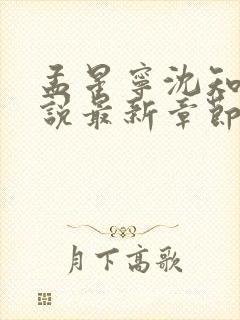 孟星寧沈知
說最新章節
月下高歌